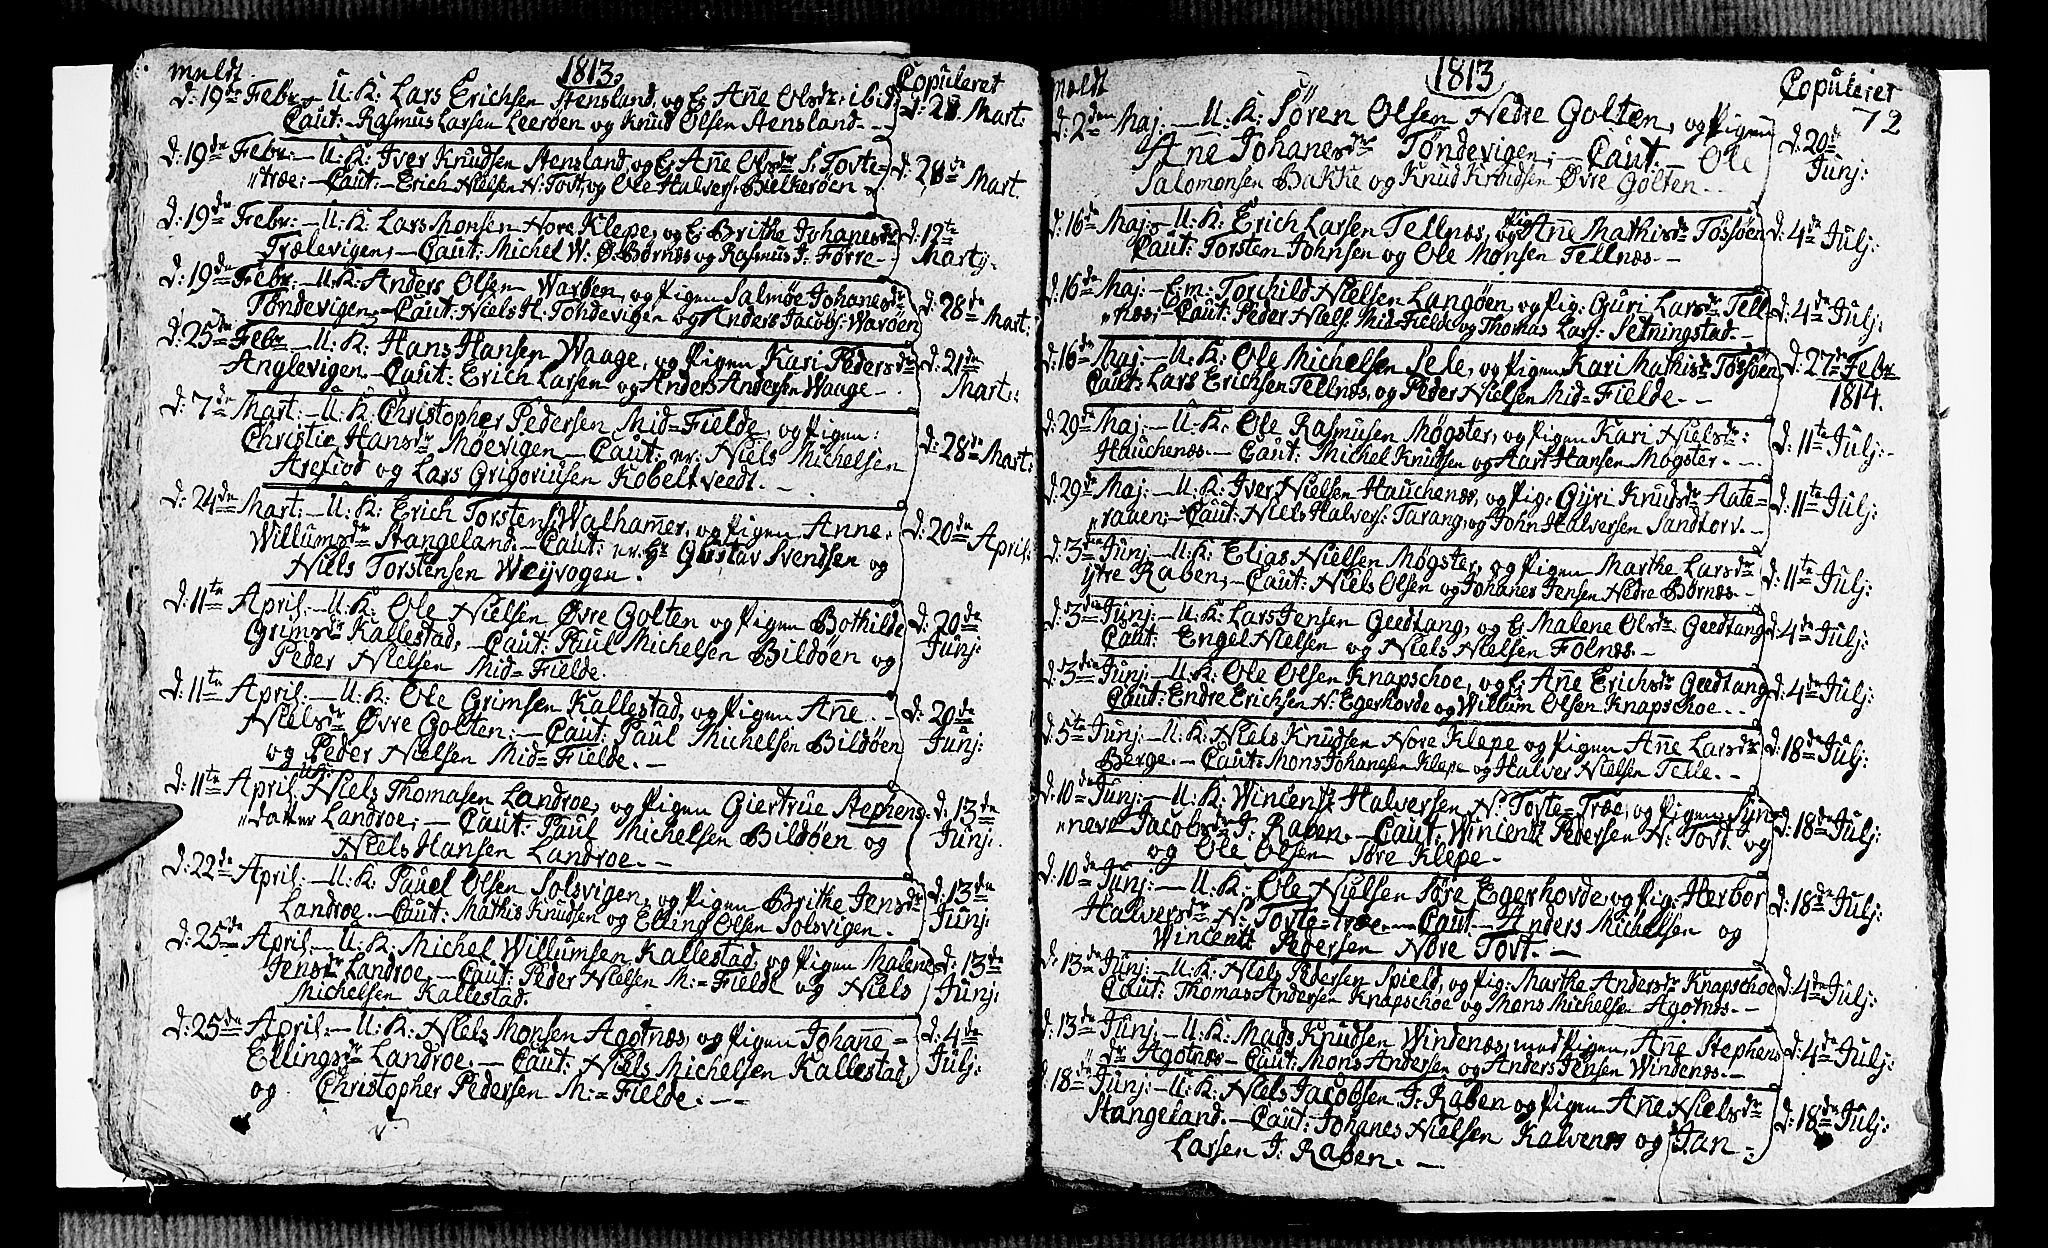 meldt. 1813. Copuleret
d: 19de Febr. – U: K: Lars Erichsen Stensland, og E: Añe Olsdr ibid d: 28. Mart:
Caut: – Rasmus Larsen Leeröen og Knud Olsen Stensland. –
d: 19de Febr: – U: K: Iver Knudsen Stensland, og E: Añe Olsdr S: Tovte= d: 28de Mart.
"træe; – Caut: – Erich Nielsen N: Tovt, og Ole Halvers: Bielkeröen –
d: 19de Febr: – U: K: Lars Monsen Nore Klepe, og E: Brithe Johanesdr d: 12te
Trælevigen, – Caut: Michel W: Ø: Børnæs og Rasmus J: Førre – Martj.
d: 19de Febr: – U: K: Anders Olsen Waröen, og Pigen Salmøe Johanesdr d: 28de
Töndevigen, – Caut: Niels H: Töndevigen og Anders Jacobs: Waröen Mart:
d: 25de Febr – U: K: Hans Hansen Waage, og Pigen Kari Pedersdr d: 21de
Anglevigen. – Caut: Erich Larsen og Anders Andersen Waage – Mart:
d: 7de Mart: – U: K: Christopher Pedersen Mid=Fielde, og Pigen:
Christie Hansdr Møevigen – Caut: Niels Michelsen d: 28de Mart:
Arefiod og Lars Grigoriusen Kobeltveedt. –
d: 24de Mart: – U: K: Erich Torstens: Walhamer, og Pigen Anne
Willumsdr Stangeland. – Caut: Gustav Svendsen og d: 20de April.
Niels Torstensen Weijvogen.
d: 11te April. – U: K: Ole Nielsen Øvre Golten og Pigen Bothilde d: 20de
Grimsdr Kallestad, – Caut: Paul Michelsen Bildøen og Junj:
Peder Nielsen Mid=Fielde.
d: 11te April. – U: K: Ole Grimsen Kallestad, og Pigen Añe – d: 20de
Nielsdr Øvre Golten: – Caut: Paul Michelsen Bildøen Junj:
og Peder Nielsen Mid=Fielde. –
d: 11te April U:K: Niels Thomasen Landroe, og Pigen Giertrue Stephens= d: 13de
"datter Landroe; – Caut: Paul Michelsen Bildøen og Junj:
Niels Hansen Landroe. –
d: 22de April. – U: K: Pauel Olsen Solsvigen, og Pigen Brithe Jensdr d: 13de
Landroe. – Caut: Mathis Knudsen og Elling Olsen Solsvigen. Junj:
d: 25de April. – U: K: Michel Willumsen Kallestad, og Pigen Malene d: 13de
Jensdr Landroe. – Caut: Peder Nielsen M:=Fielde og Niels Junj:
Michelsen Kallestad.
d: 25de April. – U: K: Niels Monsen Agotnæs, og Pigen Johañe= d: 4de
Ellingsdr Landroe. – Caut: Niels Michelsen Kallestad, Julj:
og Christopher Pedersen M:=Fielde. –
meldt 1813 Copuleret
72
d: 2den Maj: – U: K: Sören Olsen Nedre Golten, og Pigen d: 20de
Añe Johanesdr Töndevigen; – Caut. – Ole Junj:
Salomonsen Bakke og Knud Knudsen Øvre Golten –
d: 16de Maj: – U: K: Erich Larsen Tellnæs, og Pig: Añe Mathisdr Tössöen d: 4de Julj:
Caut: Torsten Johnsen og Ole Monsen Tellnæs. –
d: 16de Maj: – E:m: Torchild Nielsen Langöen, og Pig: Guri Larsdr Tell=
"næs; – Caut: Peder Niels: Mid=Fielde og Thomas Lars: Setningstad. d: 4de Julj:
d: 16de Maj: – U: K: Ole Michelsen Sele, og Pigen Kari Mathisdr Tössöen, d: 27de Febr
Caut: Lars Erichsen Tellnæs, og Peder Nielsen Mid=Fielde. – 1814.
d: 29de Maj: – U: K: Ole Rasmusen Møgster, og Pigen Kari Nielsdr: d: 11te Julj:
Hauchenæs. – Caut: Michel Knudsen og Aart Hansen Møgster. –
d: 29de Maj: – U: K: Iver Nielsen Hauchenæs, og Pig: Gyri Knudsdr Aate= d: 11te Julj:
"rauen; – Caut: Niels Halvers: Tarang, og John Halversen Sandtorv. –
d: 3die Junj: – U: K: Elias Nielsen Møgster, og Pigen Marthe Larsdr d: 11te Julj:
ytre Raben; – Caut: Niels Olsen og Johanes Jensen Nedre Børnæs. –
d: 3die Junj: – U: K: Lars Jensen Geedtang, og E: Malene Olsdr Geedtang d: 4de Julj:
Caut: Engel Nielsen og Niels Nielsen Følnæs. –
d: 3die Junj: – U: K: Ole Olsen Knapschoe, og E: Añe Erichsdr Geedtang d: 4de Julj:
Caut: Endre Erichsen N: Egerhovde og Willum Olsen Knapschoe. –
d: 5te Junj: – U: K: Niels Knudsen Nore Klepe og Pigen Añe Larsdr d: 18de Julj:
Berge. – Caut: Mons Johanesen Klepe og Halver Nielsen Telle. –
d: 10de Junj: – U: K: Wincents Halversen N: Tovte=Træe, og Pigen Syn=
"neve Jacobsdr J: Raben. – Caut: Wincents Pedersen N: Tovt. og d: 18de Julj:
og Ole Olsen Søre Klepe. –
d: 10de Junj: – U: K: Ole Nielsen Søre Egerhovde, og Pig: Herbor d: 18de Julj:
Halversdr N: Tovte=træe. – Caut. – Anders Michelsen og
Wincents Pedersen Nore Tovt. –
d: 13de Junj: – U: K: Niels Pedersen Spield, og Pig: Marthe Andersdr Knapschoe d: 4de Julj:
Caut: Thomas Andersen Knapschoe og Mons Michelsen Agotnæs. –
d: 13de Junj: – U: K: Mads Knudsen Windenæs, med Pigen, Añe Stephens d: 4de Julj:
dr Agotnæs – Caut: Mons Andersen og Anders Jensen Windenæs. –
d: 18de Junj: – U: K: Niels Jacobsen J: Raben og Pigen Añe Nielsdr
Stangeland. – Caut: Johanes Nielsen Kalvenes og Jan – d: 18de Julj:
Larsen J: Raben. –